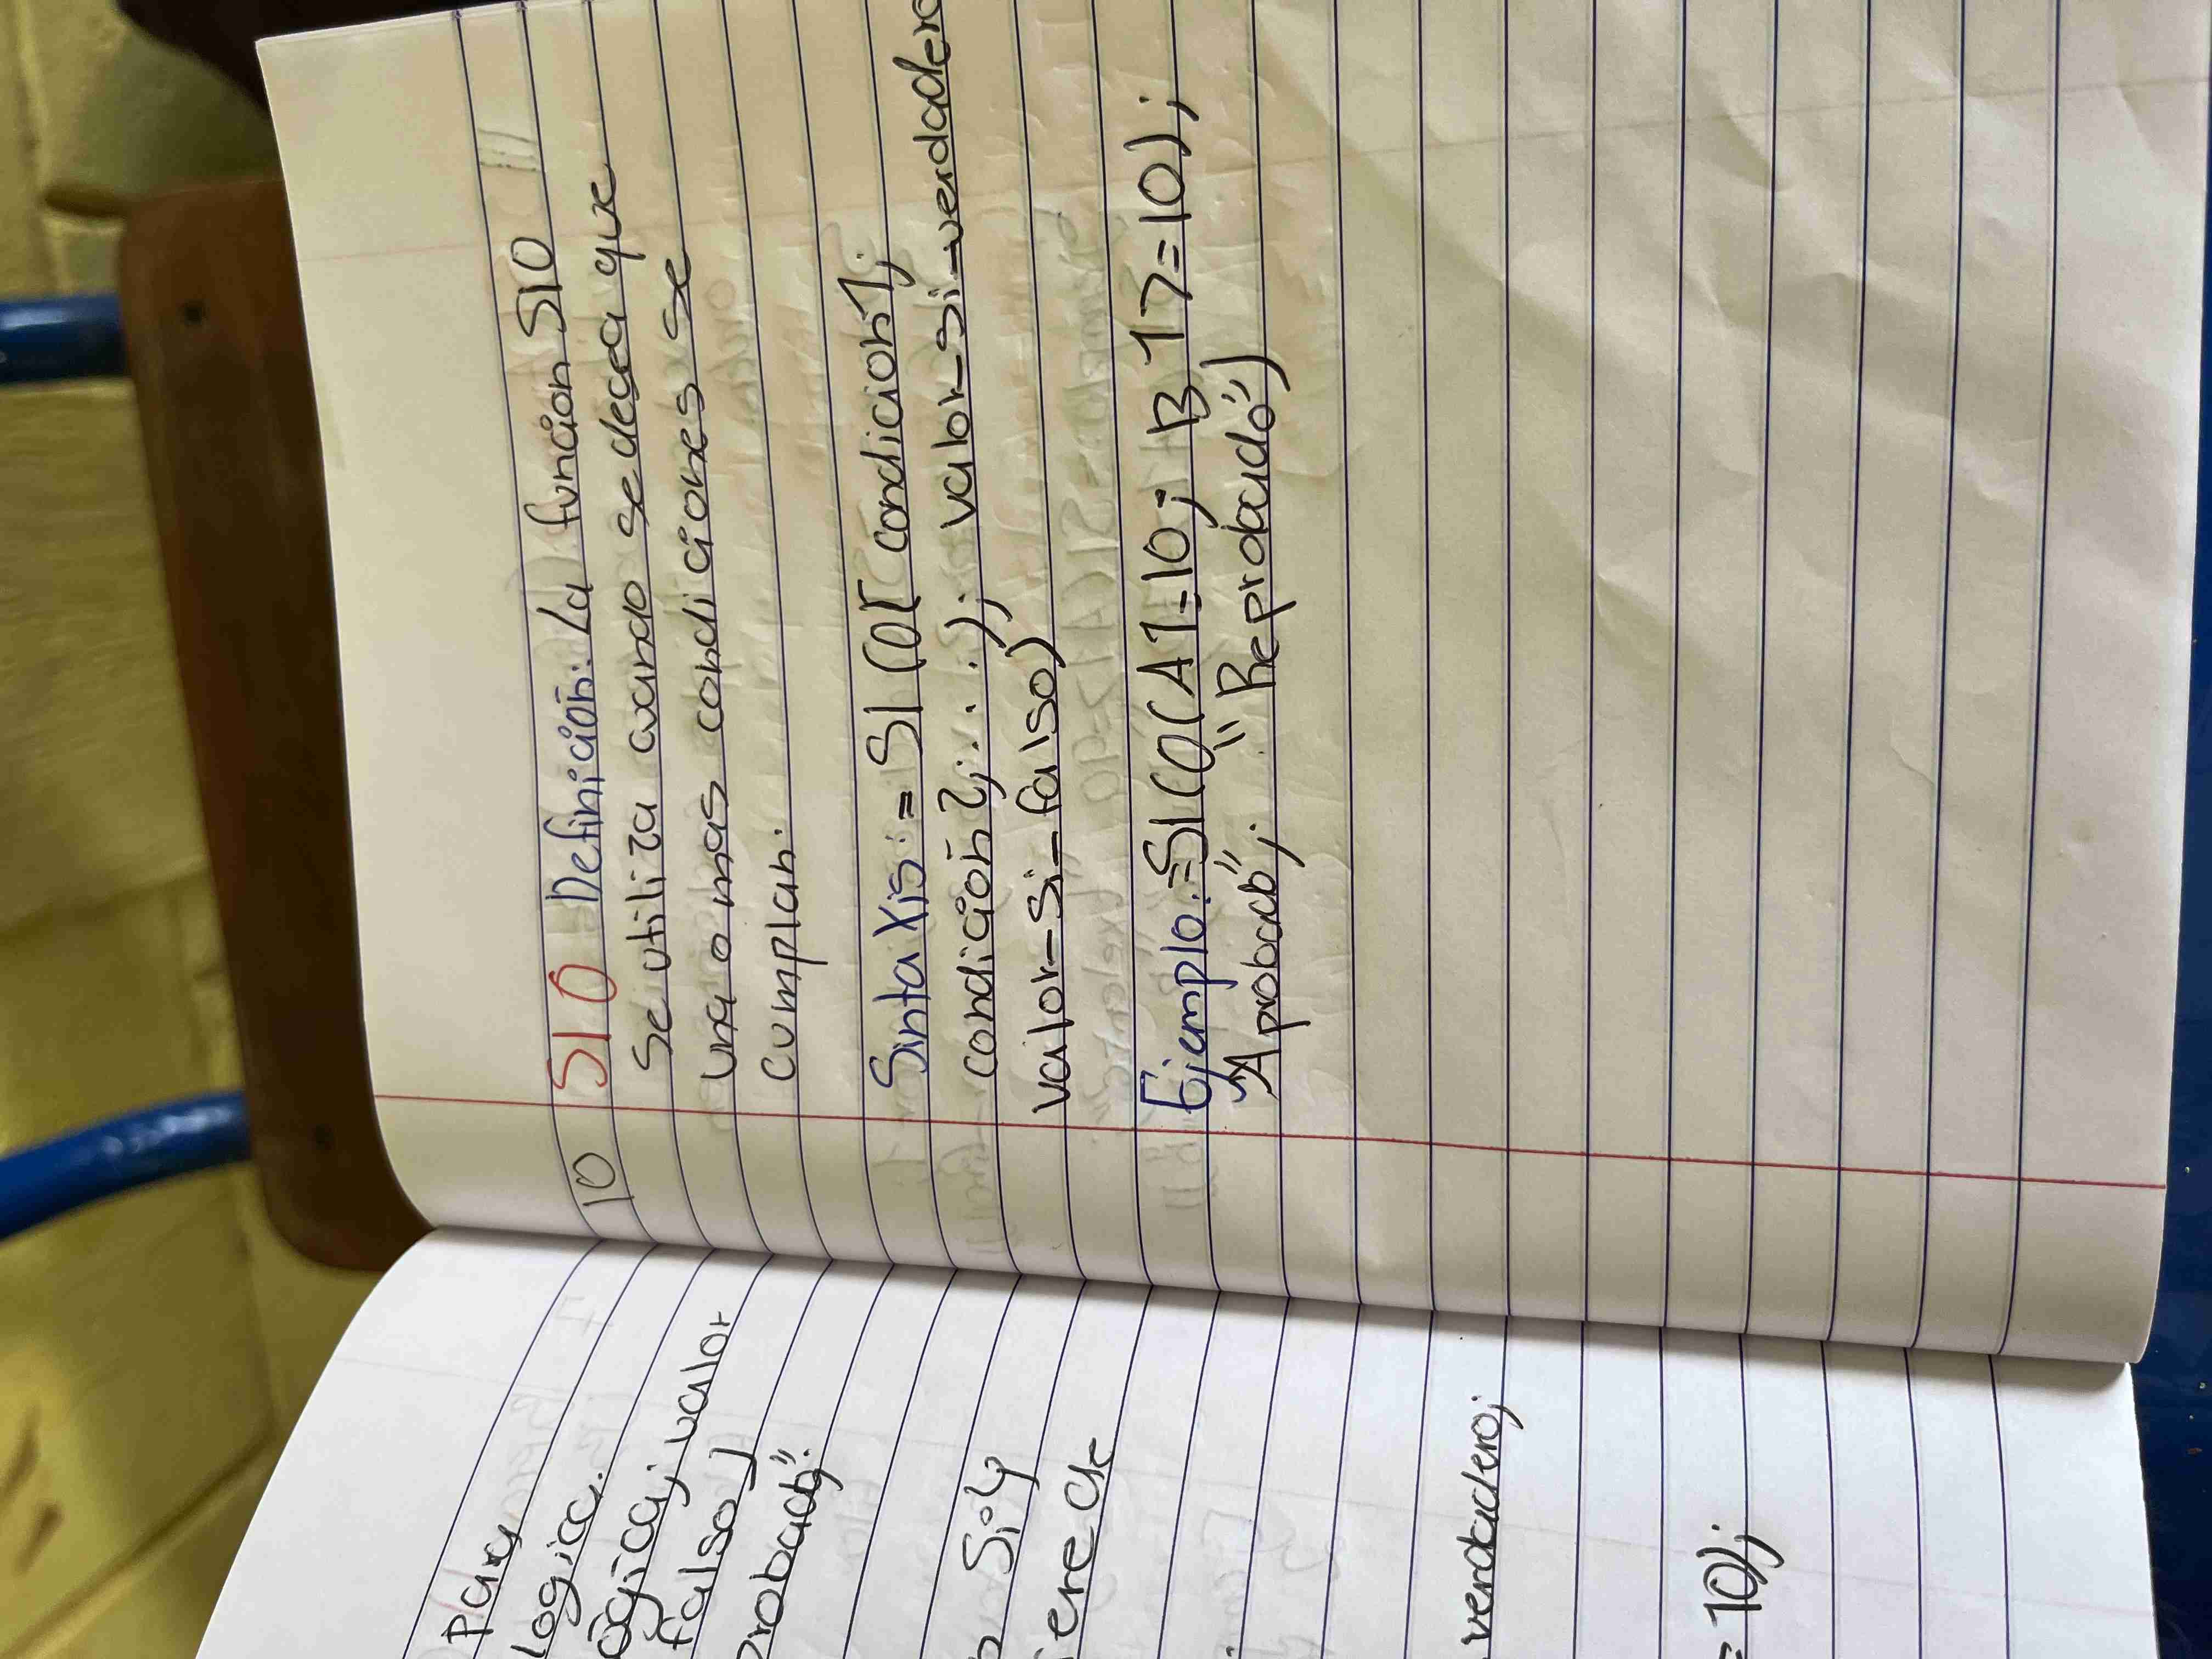 para
logica.
ogica; valor
falso)
probado".
Si y
iere de
verdadero;
= 10);
10 SI O Definición: La función SIO
Se utiliza cuando se decea que
una o mas condiciones se
cumplan.
Sintaxis: = SI (O( condición1;
condición 2;...); valor_si_verdadero
valor_si_falso)
Ejemplo: =SI(O(A1=10; B1>=10);
"Aprobado"; "Reprobado")